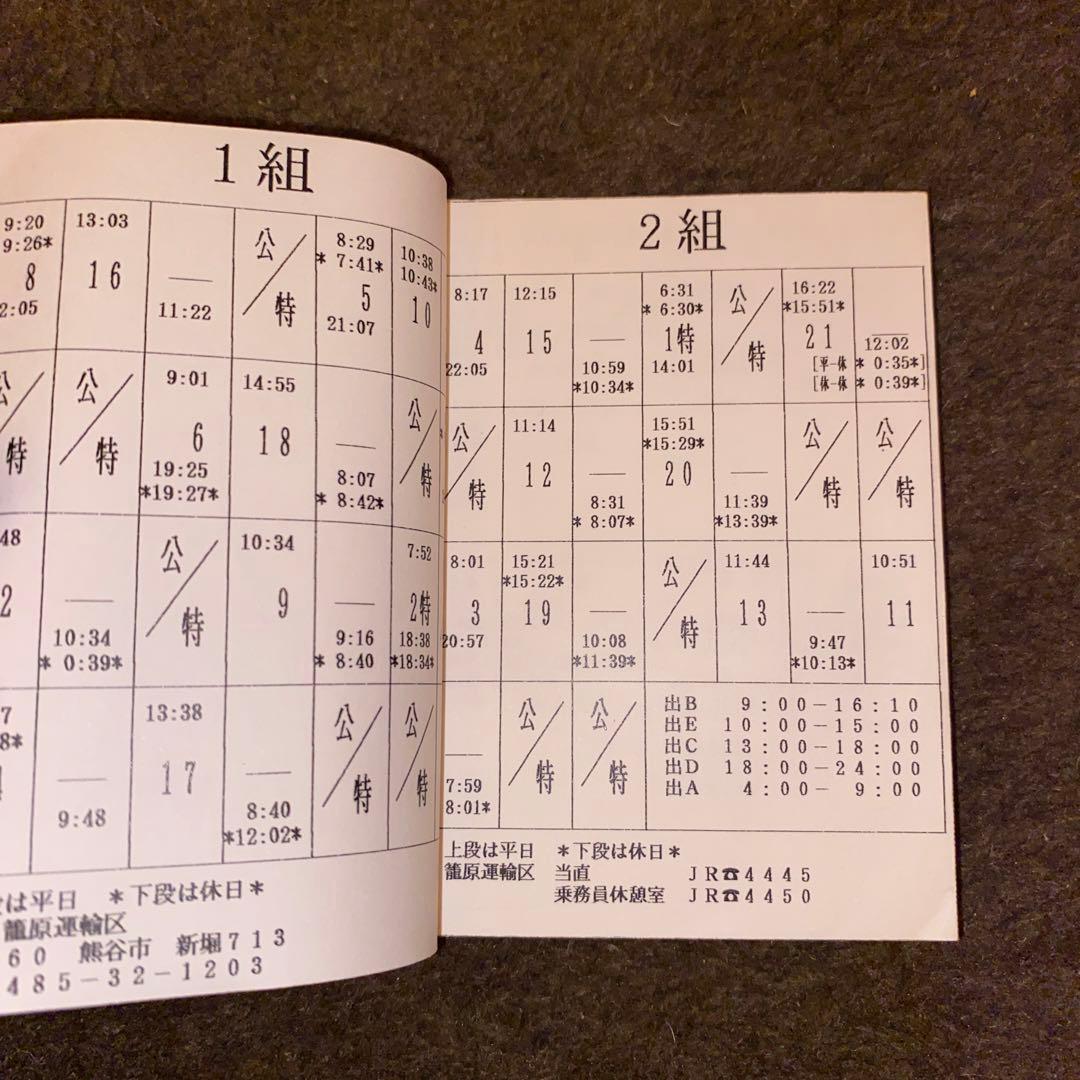 1組
9:20 13:03 ― 公/特 8:29 10:38
9:26* * 7:41* 10:43*
8 16 5 10
2:05 11:22 21:07
公/特 公/特 9:01 14:55 ― 公/特
6 18
19:25 8:07
*19:27* * 8:42*
48 ― 公/特 10:34 ― 7:52
2 9 2特
10:34 9:16 18:38
* 0:39* * 8:40 *18:34*
7 ― 13:38 ― 公/特 公/特
8*
17
9:48 8:40
*12:02*
は平日 *下段は休日*
籠原運輸区
60 熊谷市 新堀713
485-32-1203
2組
8:17 12:15 ― 6:31 公/特 16:22 ―
* 6:30* *15:51*
4 15 1特 21
22:05 10:59 14:01 [平―休 12:02
*10:34* [休―休 * 0:35*]
* 0:39*]
公/特 11:14 ― 15:51 ― 公/特 公/特
*15:29*
12 20
8:31 11:39
* 8:07* *13:39*
8:01 15:21 ― 公/特 11:44 ― 10:51
*15:22*
3 19 13 11
20:57 10:08 9:47
*11:39* *10:13*
― 公/特 公/特
7:59
8:01*
出B 9:00-16:10
出E 10:00-15:00
出C 13:00-18:00
出D 18:00-24:00
出A 4:00- 9:00
上段は平日 *下段は休日*
籠原運輸区 当直 JR☎4445
乗務員休憩室 JR☎4450